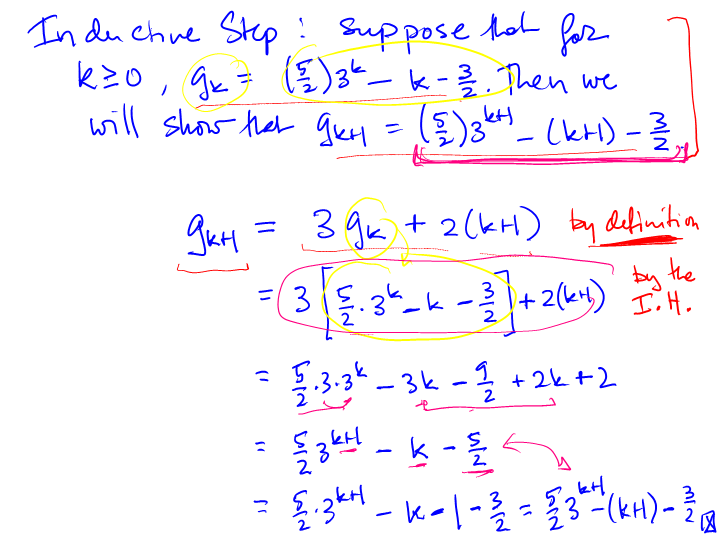 Inductive Step : suppose that for
k ≥ 0 , g_k = (5/2)3^k - k - 3/2. Then we
will show that g_{k+1} = (5/2)3^{k+1} - (k+1) - 3/2
g_{k+1} = 3 g_k + 2(k+1) by definition
= 3 [5/2 · 3^k - k - 3/2] + 2(k+1) by the I.H.
= 5/2 · 3 · 3^k - 3k - 9/2 + 2k + 2
= 5/2 3^{k+1} - k - 5/2
= 5/2 · 3^{k+1} - k - 1 - 3/2 = 5/2 3^{k+1} - (k+1) - 3/2 ☒